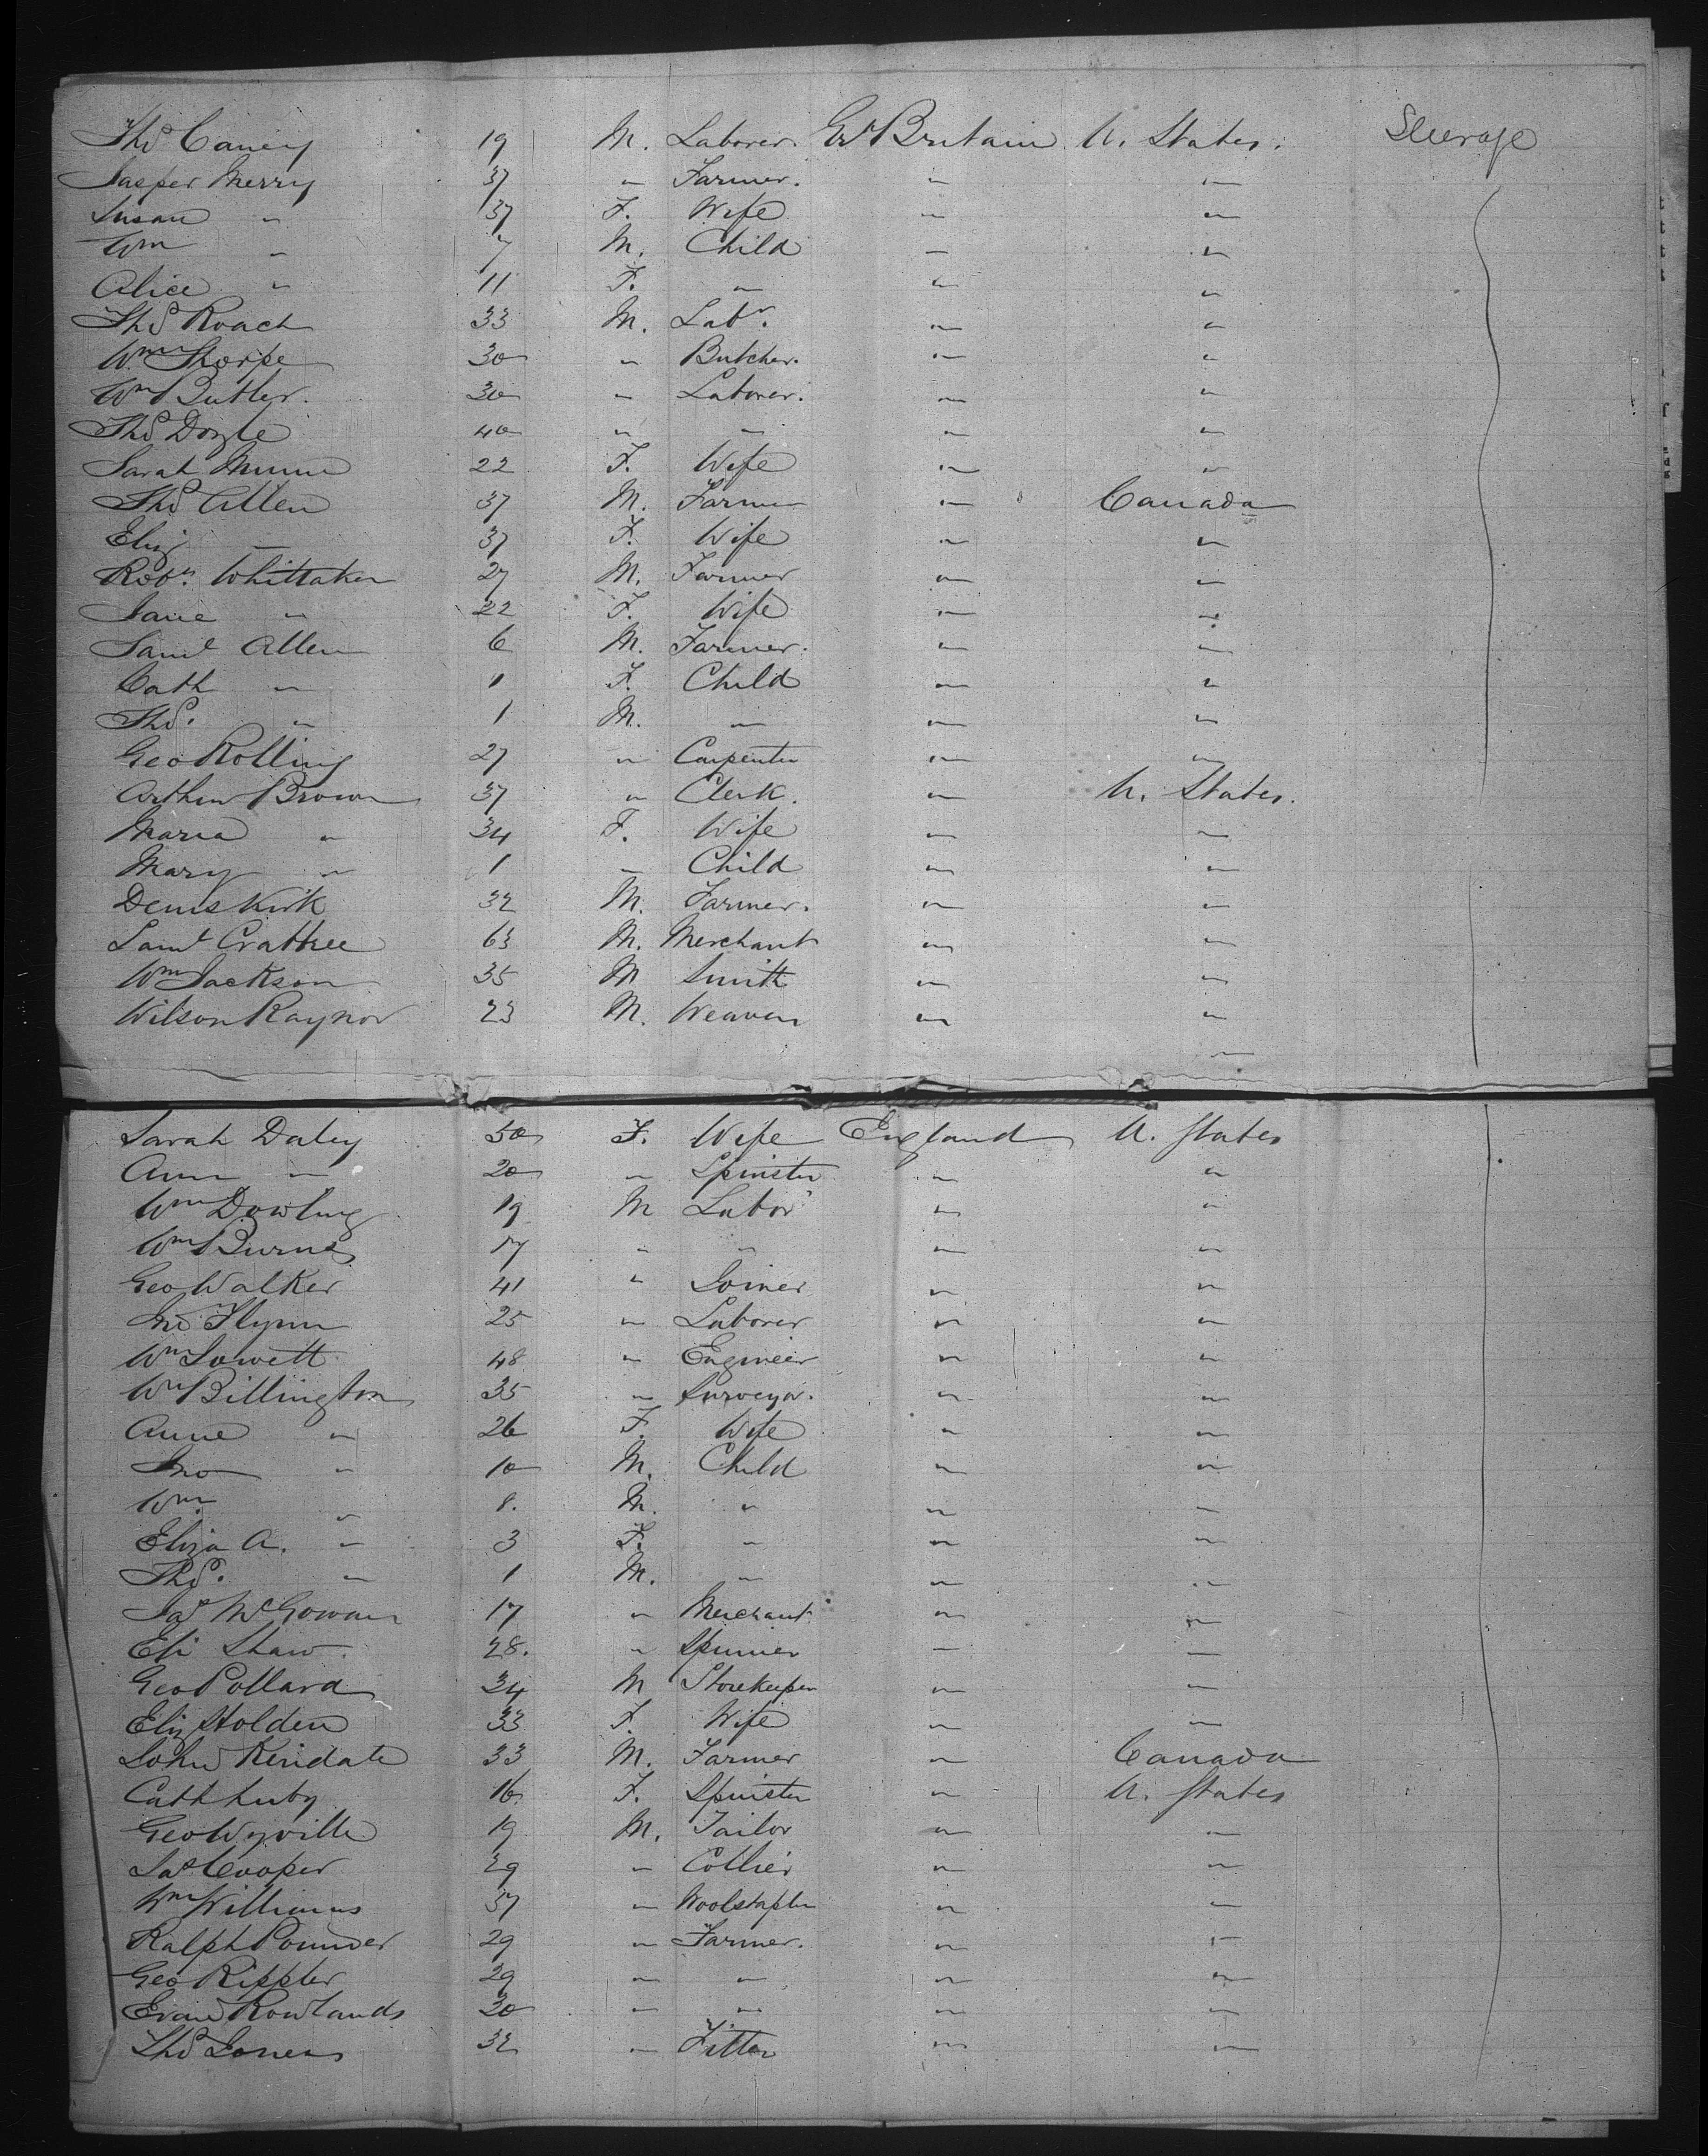 Thos Caney 19 M. Laborer Gt Britain U. States. Steerage
Jasper Merry 37 " Farmer. " "
Susan " 37 F. Wife " "
Wm " 7 M. Child " "
Alice " 11 F. " " "
Thos Roach 33 M. Labr. " "
Wm Thorpe 30 " Butcher. " "
Wm Butler. 30 " Laborer. " "
Thos Doyle 40 " " " "
Sarah Munn 22 F. Wife " "
Thos Allen 37 M. Farmer " Canada
Eliz " 37 F. Wife " "
Robt. Whittaker 27 M. Farmer " "
Jane " 22 F. Wife " "
Saml Allen 6 M. Farmer. " "
Cath " 1 F. Child " "
Thos. " 1 M. " " "
Geo Rolling 27 " Carpenter " "
Arthur Brown 37 " Clerk. " U. States.
Maria " 34 F. Wife " "
Mary " 1 " Child " "
Denis Kirk 32 M. Farmer. " "
Saml Crabtree 63 M. Merchant " "
Wm Jackson 35 M Smith " "
Wilson Raynor 23 M. Weaver " "
"
Sarah Daley 50 F. Wife England U. States
Ann " 20 " Spinster " "
Wm Dowling 19 M Labor " "
Wm Burns 17 " " " "
Geo Walker 41 " Joiner " "
Jno Flynn 25 " Laborer " "
Wm Jowett 48 " Engineer " "
Wm Billington 35 " Surveyor. " "
Anne " 26 F. Wife " "
Jno " 10 M. Child " "
Wm. " 8. M. " " "
Eliza A. " 3 F. " " "
Thos. " 1 M. " " "
Jas McGowan 17 " Merchant " "
Eli Shaw 28. " Spinner " "
Geo Pollard 34 M Storekeeper " "
Eliz Holden 33 F. Wife " "
John Kendale 33 M. Farmer " Canada
Cath Luby 16 F. Spinster " U. States
Geo Wyville 19 M. Tailor " "
Jas Cooper 29 " Collier " "
Wm Williams 37 " Woolstapler " "
Ralph Pounder 29 " Farmer. " "
Geo Rippler 29 " " " "
Evan Rowlands 30 " " " "
Thos Jones 32 " Fitter " "